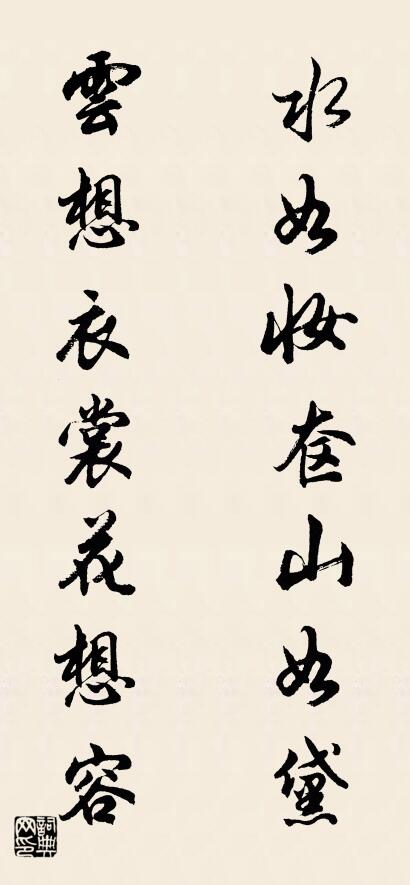 水如妆奁山如黛
雲想衣裳花想容
詞典网印